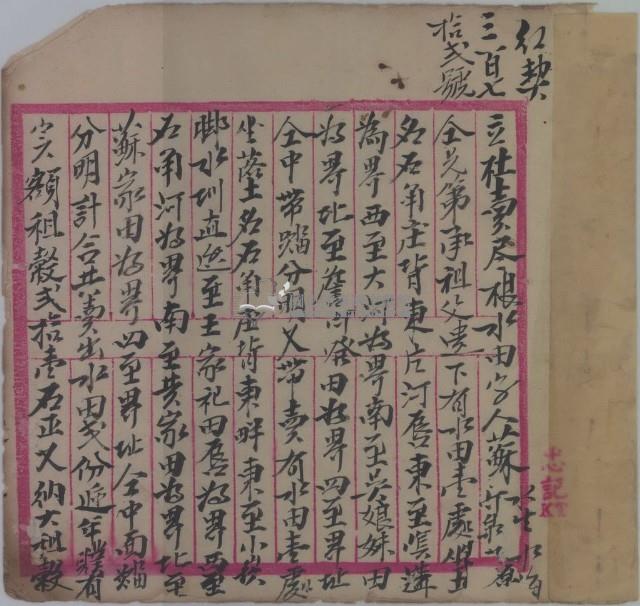 紅契
三百七
拾弍號
立杜賣尽根水田字人蘇
水生
水旬
仝兄弟承祖父遺下有水田壹處坐
名石角庄背東片河唇東至
為界西至大河為界南至吳娘妹田
為界北至詹 發田為界四至界址
仝中帶踏分明又帶賣有水田壹處
坐落土名石角庄背東畔東至小
脚水圳直透至王家祀田唇為界西至
石角河為界南至黃家田為界北至
蘇家田為界四至界址仝中面踏
分明計合共賣出水田弍份遞年
實額租穀弍拾壹石正又納大租穀
忠記